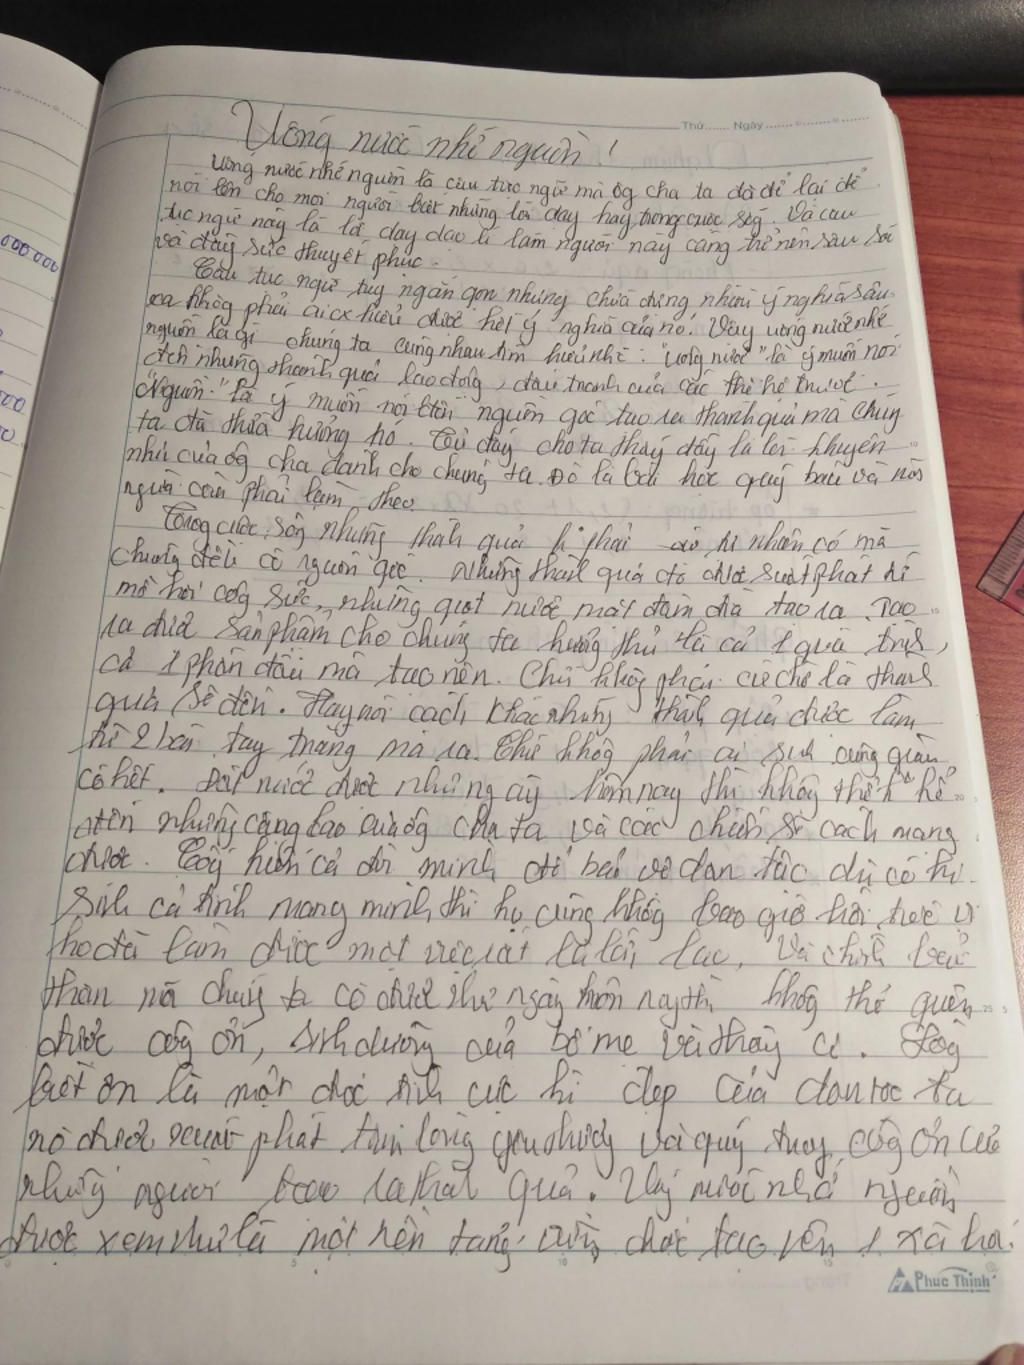 000.000
000
Thứ...... Ngày
Uống nước nhớ nguồn!
Uống nước nhớ nguồn là câu tục ngữ mà ôg cha ta đã để lại để
nói lên cho mọi người biết những lời dạy hay trong cuộc sống. Và câu
tục ngữ này là lời dạy đạo lí làm người này càng trở nên sâu sắc
và đầy sức thuyết phục.
Câu tục ngữ tuy ngắn gọn nhưng chứa đựng nhiều ý nghĩa sâu
xa không phải ai cx hiểu được hết ý nghĩa của nó. Vậy uống nước nhớ
nguồn là gì chúng ta cùng nhau tìm hiểu nhé: "uống nước" là ý muốn nói
đến những thành quả lao động, đấu tranh của các thế hệ trước.
"Nguồn" là ý muốn nói đến nguồn gốc tạo ra thành quả mà chúng
ta đã thừa hưởng nó. Từ đây cho ta thấy đây là lời khuyên
nhủ của ôg cha dành cho chúng ta. Đó là bài học quý báu và mỗi
người cần phải làm theo
Trong cuộc sống những thành quả k phải tự nhiên có mà
chúng đều có nguồn gốc. Những thành quả đó được xuất phát từ
mồ hôi công sức, những giọt nước mắt đã tạo ra. Tạo
ra được sản phẩm cho chúng ta hưởng thụ là cả 1 quá trình,
cả 1 phấn đấu mà tạo nên. Chứ không phải cứ chờ là thành
quả sẽ đến. Hay nói cách khác những thành quả được làm
từ 2 bàn tay trắng mà ra. Chứ không phải ai sinh cũng giàu
có hết. Đất nước được như ngày hôm nay thì không thể k kể
đến những công lao của ôg cha ta và các chiến sĩ cách mạng
được. Cống hiến cả đời mình để bảo vệ dân tộc dù có hi
sinh cả tính mạng mình thì họ cũng không bao giờ hối tiếc vì
họ đã làm được một việc rất là lớn lao. Và chính bản
thân mỗi chúng ta có được như ngày hôm nay thì không thể quên
được công ơn, sinh dưỡng của bố mẹ và thầy cô. Lòng
biết ơn là một đức tính cực kì đẹp của dân tộc ta
nó được xuất phát từ lòng yêu thương và quý trọng công ơn của
những người tạo ra thành quả. Uống nước nhớ nguồn
được xem như là một nền tảng vững chắc tạo nên 1 xã hội
Phuc Thinh